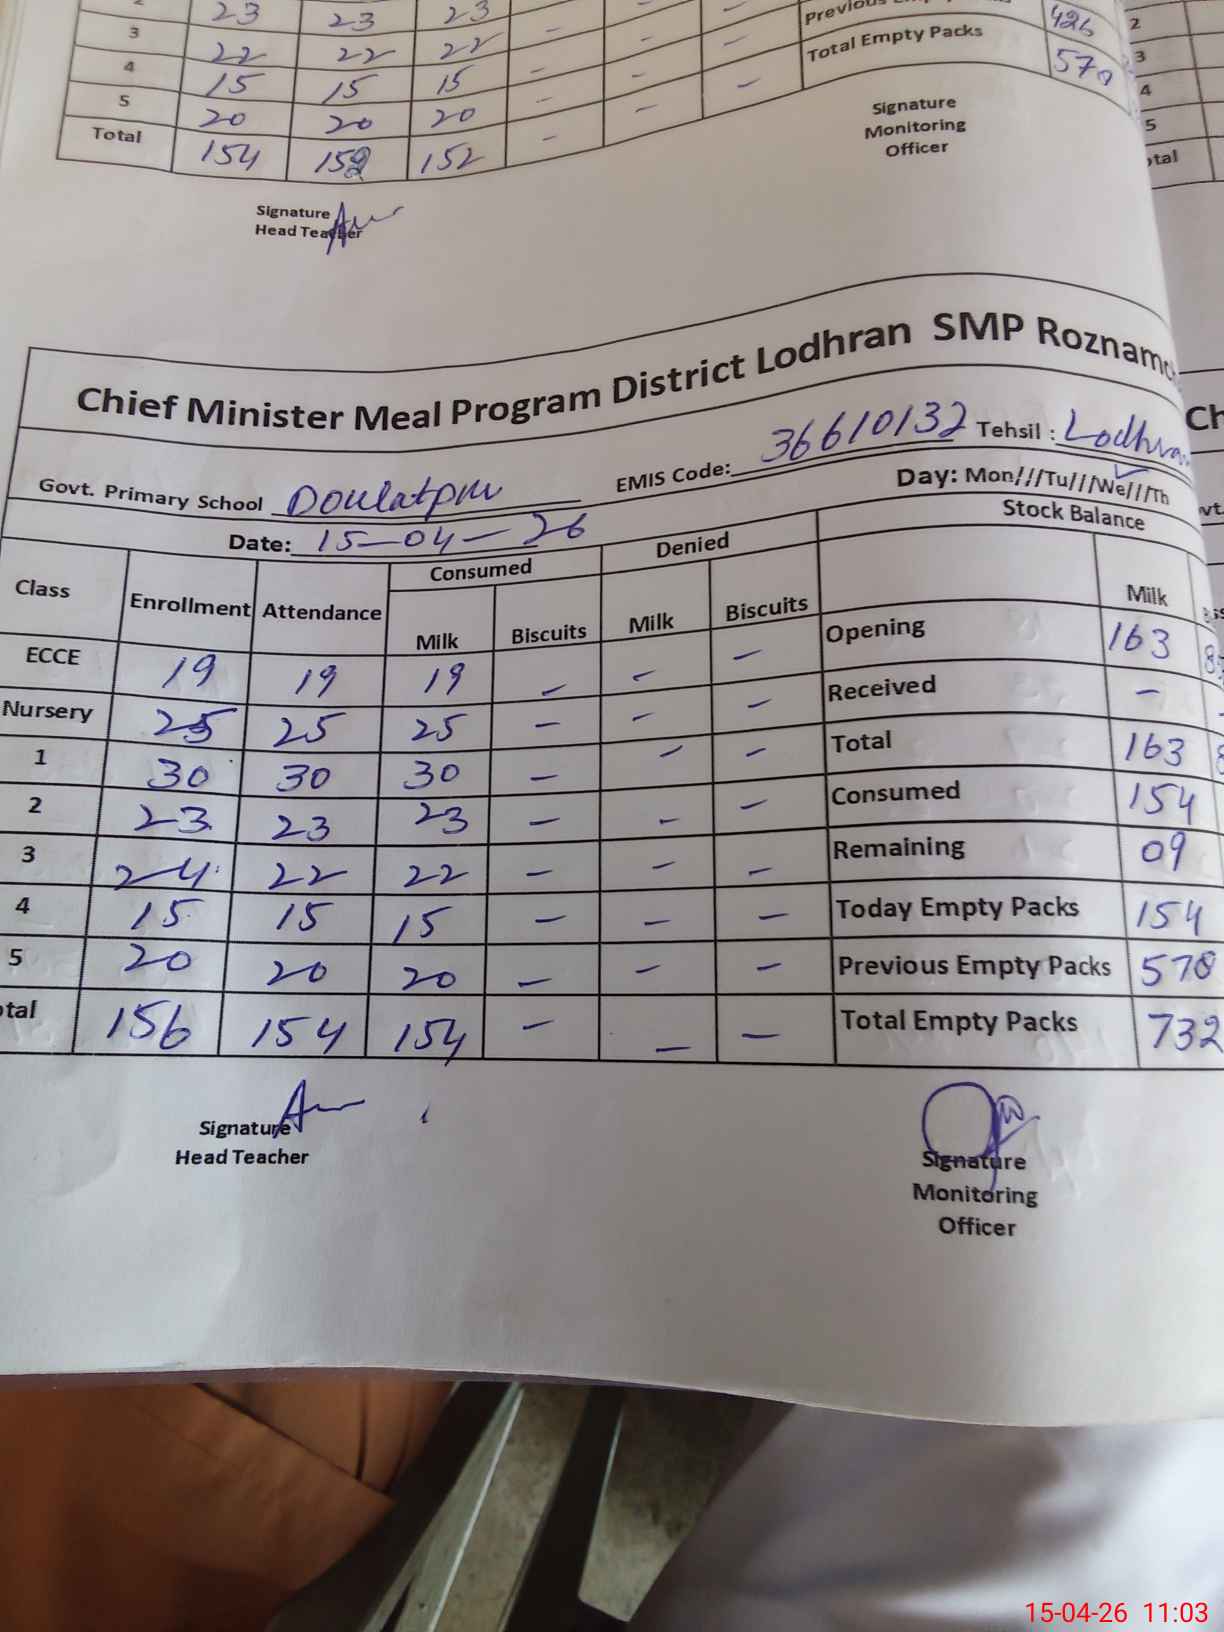 23 23 23 - -
3 22 22 22 - - -
4 15 15 15 - - -
5 20 20 20 - - -
Total 154 152 152 -
Previous 426
Total Empty Packs 570
Signature
Head Teacher
Signature
Monitoring
Officer
2
3
4
5
Chief Minister Meal Program District Lodhran SMP Roznam
Govt. Primary School Doulatpur EMIS Code: 36610132 Tehsil : Lodhran
Date: 15-04-26 Day: Mon///Tu///We///Th
Class Enrollment Attendance Consumed Denied Stock Balance
Milk Biscuits Milk Biscuits Milk
ECCE 19 19 19 - - - Opening 163
Nursery 25 25 25 - - - Received -
1 30 30 30 - - - Total 163
2 23 23 23 - - - Consumed 154
3 24 22 22 - - - Remaining 09
4 15 15 15 - - - Today Empty Packs 154
5 20 20 20 - - - Previous Empty Packs 578
tal 156 154 154 - - - Total Empty Packs 732
Signature
Head Teacher
Signature
Monitoring
Officer
15-04-26 11:03